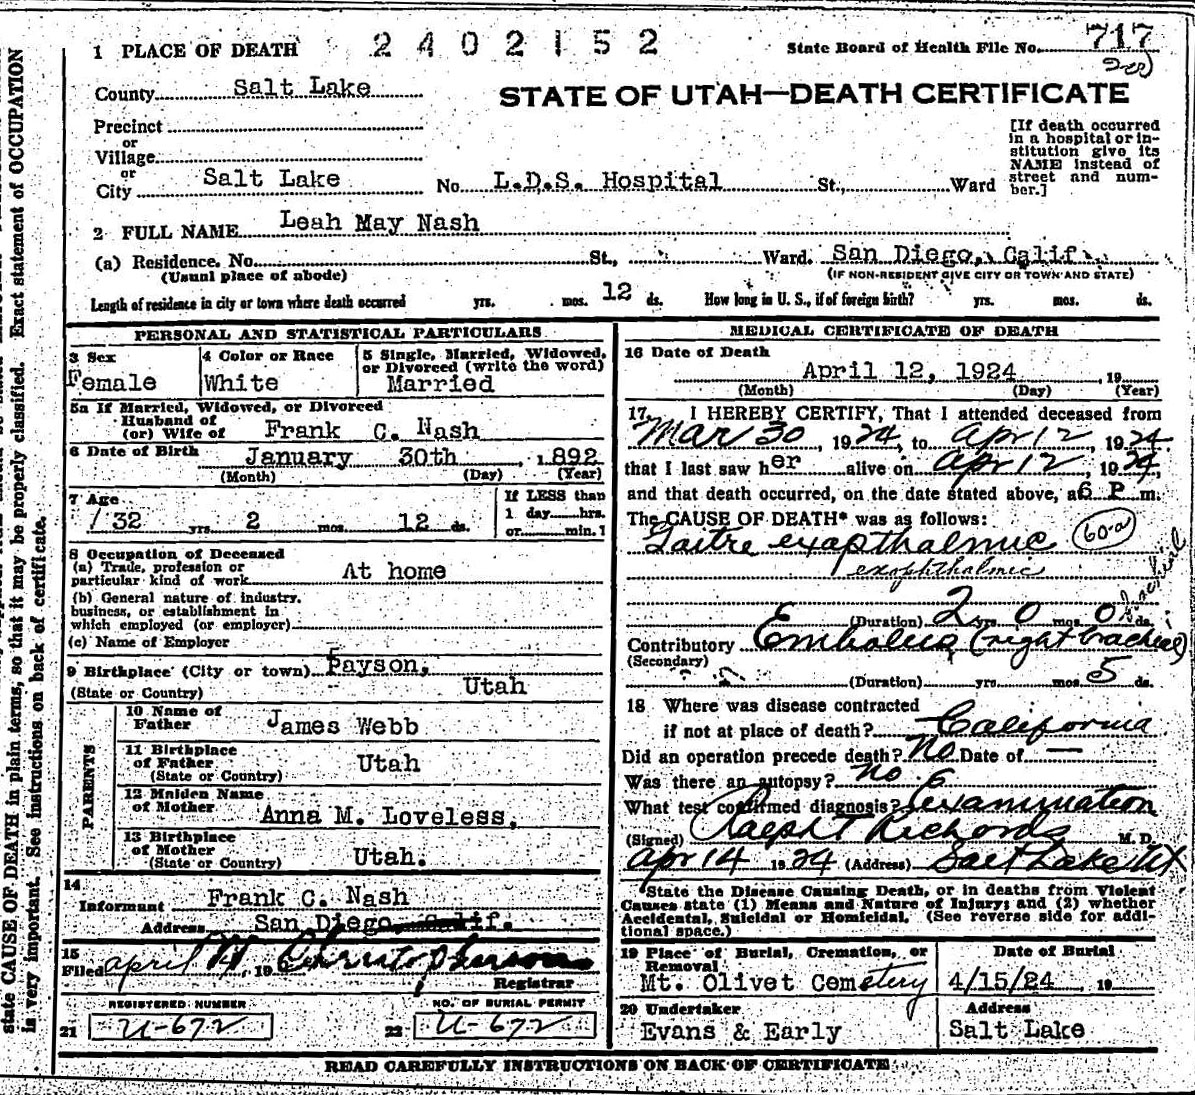 1 PLACE OF DEATH 2402152 State Board of Health File No. 717
County Salt Lake STATE OF UTAH—DEATH CERTIFICATE
Precinct
or
Village
or
City Salt Lake No. L.D.S. Hospital St., Ward
[If death occurred
in a hospital or in-
stitution give its
NAME instead of
street and num-
ber.]
2 FULL NAME Leah May Nash
(a) Residence. No. St., Ward. San Diego, Calif.
(Usual place of abode) (IF NON-RESIDENT GIVE CITY OR TOWN AND STATE)
Length of residence in city or town where death occurred yrs. mos. 12 ds. How long in U. S., if of foreign birth? yrs. mos. ds.
PERSONAL AND STATISTICAL PARTICULARS
3 Sex
Female
4 Color or Race
White
5 Single, Married, Widowed,
or Divorced (write the word)
Married
5a If Married, Widowed, or Divorced
Husband of
(or) Wife of Frank C. Nash
6 Date of Birth January 30th, 1892
(Month) (Day) (Year)
7 Age
32 yrs. 2 mos. 12 ds.
If LESS than
1 day hrs.
or min.
8 Occupation of Deceased
(a) Trade, profession or
particular kind of work At home
(b) General nature of industry,
business, or establishment in
which employed (or employer)
(c) Name of Employer
9 Birthplace (City or town) Payson,
(State or Country) Utah
PARENTS
10 Name of
Father James Webb
11 Birthplace
of Father Utah
(State or Country)
12 Maiden Name
of Mother Anna M. Loveless.
13 Birthplace
of Mother
(State or Country) Utah.
14
Informant Frank C. Nash
Address San Diego Calif.
15
Filed April 19
Registrar
REGISTERED NUMBER
21 U-672
NO. OF BURIAL PERMIT
22 U-672
MEDICAL CERTIFICATE OF DEATH
16 Date of Death
April 12, 1924, 19
(Month) (Day) (Year)
17. I HEREBY CERTIFY, That I attended deceased from
Mar 30, 1924, to Apr 12, 1924
that I last saw her alive on Apr 12, 1924,
and that death occurred, on the date stated above, at 6 P m.
The CAUSE OF DEATH* was as follows:
Goitre exapthalmic 60-a
exophthalmic
(Duration) 2 yrs. 0 mos. 0 ds.
brachial
Contributory Embolus (right bracheal)
(Secondary)
(Duration) yrs. mos. 5 ds.
18 Where was disease contracted
if not at place of death? California
Did an operation precede death? No Date of —
Was there an autopsy? No.
What test confirmed diagnosis? examination
(Signed) Ralph T Richards M. D.
Apr 14 1924 (Address) Salt Lake Ut
*State the Disease Causing Death, or in deaths from Violent
Causes state (1) Means and Nature of Injury; and (2) whether
Accidental, Suicidal or Homicidal. (See reverse side for addi-
tional space.)
19 Place of Burial, Cremation, or
Removal
Mt. Olivet Cemetery
Date of Burial
4/15/24, 19
20 Undertaker
Evans & Early
Address
Salt Lake
READ CAREFULLY INSTRUCTIONS ON BACK OF CERTIFICATE
state CAUSE OF DEATH in plain terms, so that it may be properly classified. Exact statement of OCCUPATION
is very important. See instructions on back of certificate.